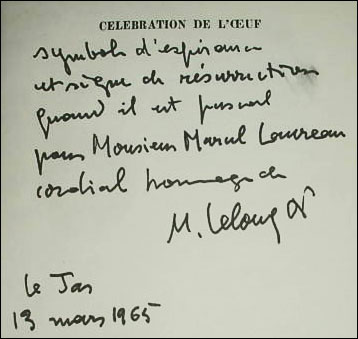 CELEBRATION DE L'ŒUF
symbole d'espérance
et signe de résurrection
quand il est pascal
pour Monsieur Marcel Loureau
cordial hommage de
M. Lelong
Le Jas
13 mars 1965